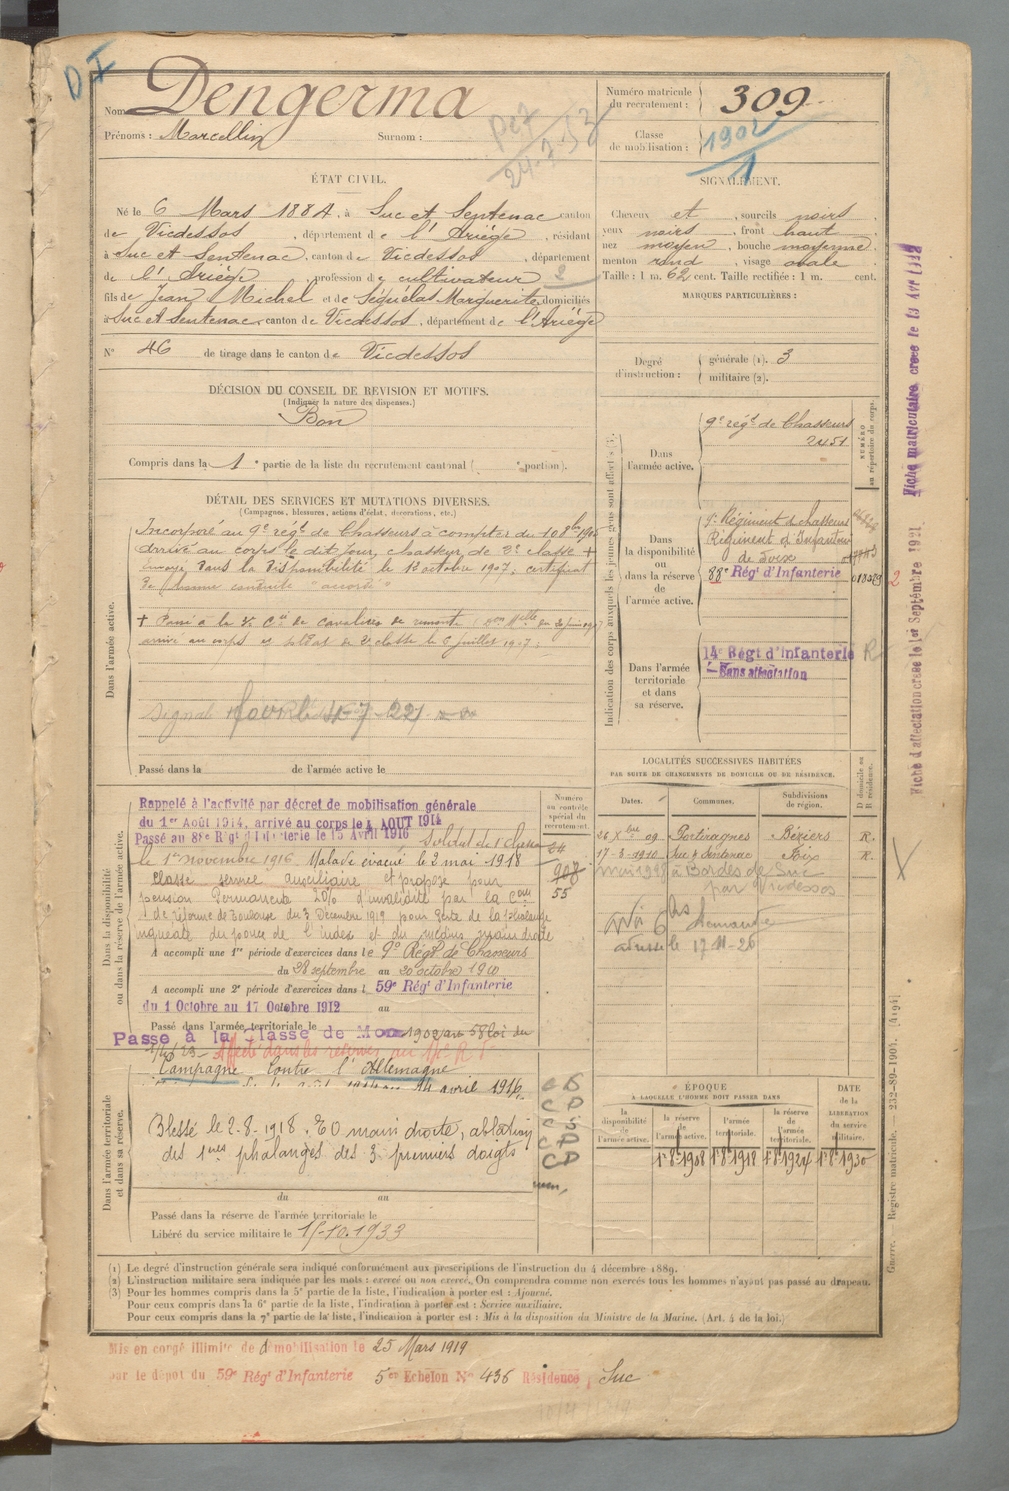 D I
Nom Dengerma
Prénoms : Marcellin Surnom :
Numéro matricule du recrutement : 309
Classe de mobilisation : 1902
24-7-52
ÉTAT CIVIL.
Né le 6 Mars 1884, à Suc et Sentenac canton
de Vicdessos, département de l'Ariège, résidant
à Suc et Sentenac, canton de Vicdessos, département
de l'Ariège, profession de cultivateur
fils de Jean Michel et de Séquélas Marguerite, domiciliés
à Suc et Sentenac, canton de Vicdessos, département de l'Ariège
N° 46 de tirage dans le canton de Vicdessos
SIGNALEMENT.
Cheveux et , sourcils noirs
yeux noirs, front haut
nez moyen, bouche moyenne
menton rond, visage ovale
Taille : 1 m. 62 cent. Taille rectifiée : 1 m. cent.
MARQUES PARTICULIÈRES :
Degré d'instruction : générale (1). 3
militaire (2).
DÉCISION DU CONSEIL DE REVISION ET MOTIFS.
(Indiquer la nature des dispenses.)
Bon
Compris dans la 1e partie de la liste du recrutement cantonal ( e portion).
DÉTAIL DES SERVICES ET MUTATIONS DIVERSES.
(Campagnes, blessures, actions d'éclat, décorations, etc.)
Dans l'armée active.
Incorporé au 9e régt de Chasseurs à compter du 10 8bre
arrivé au corps le dit jour, chasseur de 2e classe +
envoyé dans la disponibilité le 12 octobre 1907; certificat
de bonne conduite "accordé"
+ Passé à la Cie de cavaliers de remonte
arrivé au corps et soldat de 2e classe le 6 juillet 1907;
Passé dans la de l'armée active le
Indication des corps auxquels les jeunes gens sont affectés (3).
NUMÉRO au répertoire du corps.
Dans l'armée active.
9e régt de Chasseurs
2451
Dans la disponibilité ou dans la réserve de l'armée active.
9e Régiment de chasseurs
Régiment d'Infanterie
de Foix
88e Régt d'Infanterie
Dans l'armée territoriale et dans sa réserve.
14e Régt d'infanterie R
Sans affectation
Fiche matriculaire créée le 13 Avr
Fiche d'affectation créée le 1er Septembre 1921
Dans la disponibilité ou dans la réserve de l'armée active.
Numéro au contrôle spécial du recrutement.
Rappelé à l'activité par décret de mobilisation générale
du 1er Août 1914, arrivé au corps le 4 AOUT 1914
Passé au 88e Régt d'Infanterie le 15 Avril 1916 Soldat de 1e classe
le 1er novembre 1916. Malade évacué le 2 mai 1918
Classé service auxiliaire et proposé pour
pension permanente 20% d'invalidité par la Com
de réforme de Toulouse du 3 Décembre 1919 pour perte de la phalange
unguéale du pouce de l'index et du médius main droite
55
A accompli une 1re période d'exercices dans le 9e Régt de Chasseurs
du 28 septembre au 20 octobre 1910
A accompli une 2e période d'exercices dans le 59e Régt d'Infanterie
du 1 Octobre au 17 Octobre 1912 au
Passé dans l'armée territoriale le
Passé à la classe de Mob 1902
Affecté dans les réserves
LOCALITÉS SUCCESSIVES HABITÉES
PAR SUITE DE CHANGEMENTS DE DOMICILE OU DE RÉSIDENCE.
Dates. Communes. Subdivisions de région. D domicile ou R résidence.
26 Xbre 09 Portiragnes Béziers R.
17-3-1910 Suc et Sentenac Foix R.
à Bordes de Suc
par Vicdessos
le 17-11-26
Dans l'armée territoriale et dans sa réserve.
Campagne contre l'Allemagne
14 avril 1916
Blessé le 2-8-1918. EO main droite, ablation
des 1ères phalanges des 3 premiers doigts
du au
Passé dans la réserve de l'armée territoriale le
Libéré du service militaire le 15-10-1933
ÉPOQUE
A LAQUELLE L'HOMME DOIT PASSER DANS
DATE de la LIBÉRATION du service militaire.
la disponibilité de l'armée active. la réserve de l'armée active. l'armée territoriale. la réserve de l'armée territoriale.
1r 8-1908 1r 8-1918 1r 8-1924 1r 8-1930
Guerre. — Registre matricule. — 232-89-1903. [4194]
(1) Le degré d'instruction générale sera indiqué conformément aux prescriptions de l'instruction du 4 décembre 1889.
(2) L'instruction militaire sera indiquée par les mots : exercé ou non exercé. On comprendra comme non exercés tous les hommes n'ayant pas passé au drapeau.
(3) Pour les hommes compris dans la 5e partie de la liste, l'indication à porter est : Ajourné.
Pour ceux compris dans la 6e partie de la liste, l'indication à porter est : Service auxiliaire.
Pour ceux compris dans la 7e partie de la liste, l'indication à porter est : Mis à la disposition du Ministre de la Marine. (Art. 4 de la loi.)
Mis en congé illimité de démobilisation le 25 Mars 1919
par le dépôt du 59e Régt d'Infanterie 5e Echelon N° 436 Résidence Suc